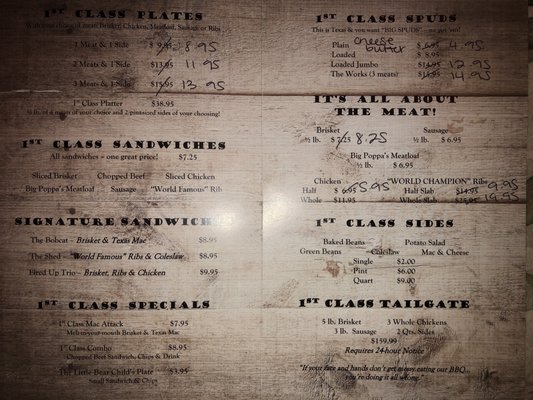 1ST CLASS PLATES
With your choice of meat: Brisket, Chicken, Meatloaf, Sausage or Ribs
1 Meat & 1 Side $ 9.95 8.95
2 Meats & 1 Side $13.95 11.95
3 Meats & 1 Side $15.95 13.95
1st Class Platter $38.95
½ lb. of 4 meats of your choice and 2 pint-sized sides of your choosing!
1ST CLASS SANDWICHES
All sandwiches – one great price! $7.25
Sliced Brisket Chopped Beef Sliced Chicken
Big Poppa's Meatloaf Sausage "World Famous" Rib
SIGNATURE SANDWICHES
The Bobcat - Brisket & Texas Mac $8.95
The Shed – "World Famous" Ribs & Coleslaw $8.95
Fired Up Trio – Brisket, Ribs & Chicken $9.95
1ST CLASS SPECIALS
1st Class Mac Attack $7.95
Melt-in-your-mouth Brisket & Texas Mac
1st Class Combo $8.95
Chopped Beef Sandwich, Chips & Drink
The Little Bear Child's Plate $3.95
Small Sandwich & Chips
1ST CLASS SPUDS
This is Texas & you want "BIG SPUDS"
Plain cheese butter $ 6.95 4.95
Loaded $ 8.95
Loaded Jumbo $14.95 12.95
The Works (3 meats) $15.95 14.95
IT'S ALL ABOUT
THE MEAT!
Brisket Sausage
½ lb. $ 7.25 8.25 ½ lb. $ 6.95
Big Poppa's Meatloaf
½ lb. $ 6.95
Chicken "WORLD CHAMPION" Ribs
Half $ 6.95 5.95 Half Slab $14.95 9.95
Whole $11.95 Whole Slab $25.95 19.95
1ST CLASS SIDES
Baked Beans Potato Salad
Green Beans Coleslaw Mac & Cheese
Single $2.00
Pint $6.00
Quart $9.00
1ST CLASS TAILGATE
5 lb. Brisket 3 Whole Chickens
3 lb. Sausage 2 Qrts. Sides
$159.99
Requires 24-hour Notice
"If your face and hands don't get messy eating our BBQ...
you're doing it all wrong."